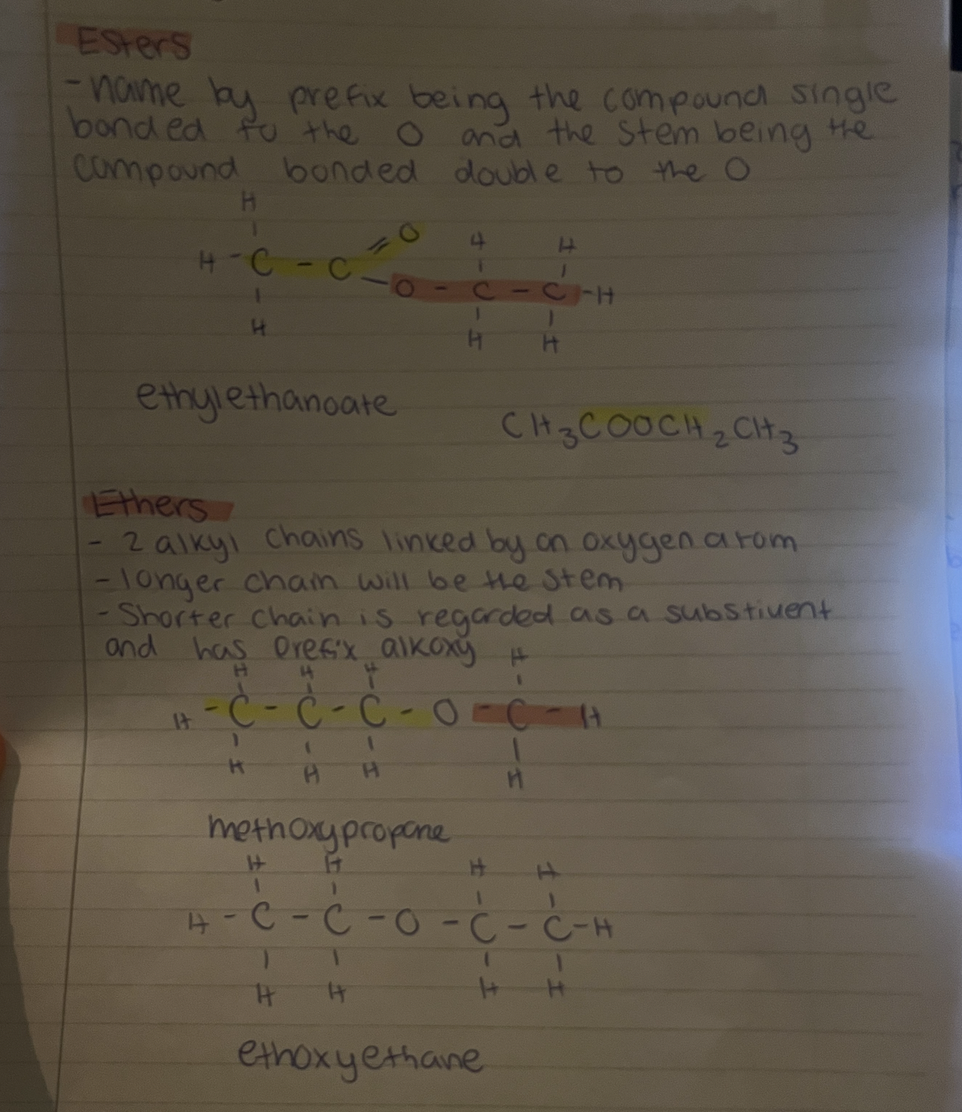 Esters
- name by prefix being the compound single
bonded to the O and the stem being the
compound bonded double to the O
H
H - C - C = O H H
- O - C - C - H
H H H
ethylethanoate
CH₃COOCH₂CH₃
Ethers
- 2 alkyl chains linked by an oxygen atom
- longer chain will be the stem
- Shorter chain is regarded as a substiuent
and has prefix alkoxy
H H H H
H - C - C - C - O - C - H
H H H H
methoxypropane
H H H H
H - C - C - O - C - C - H
H H H H
ethoxyethane